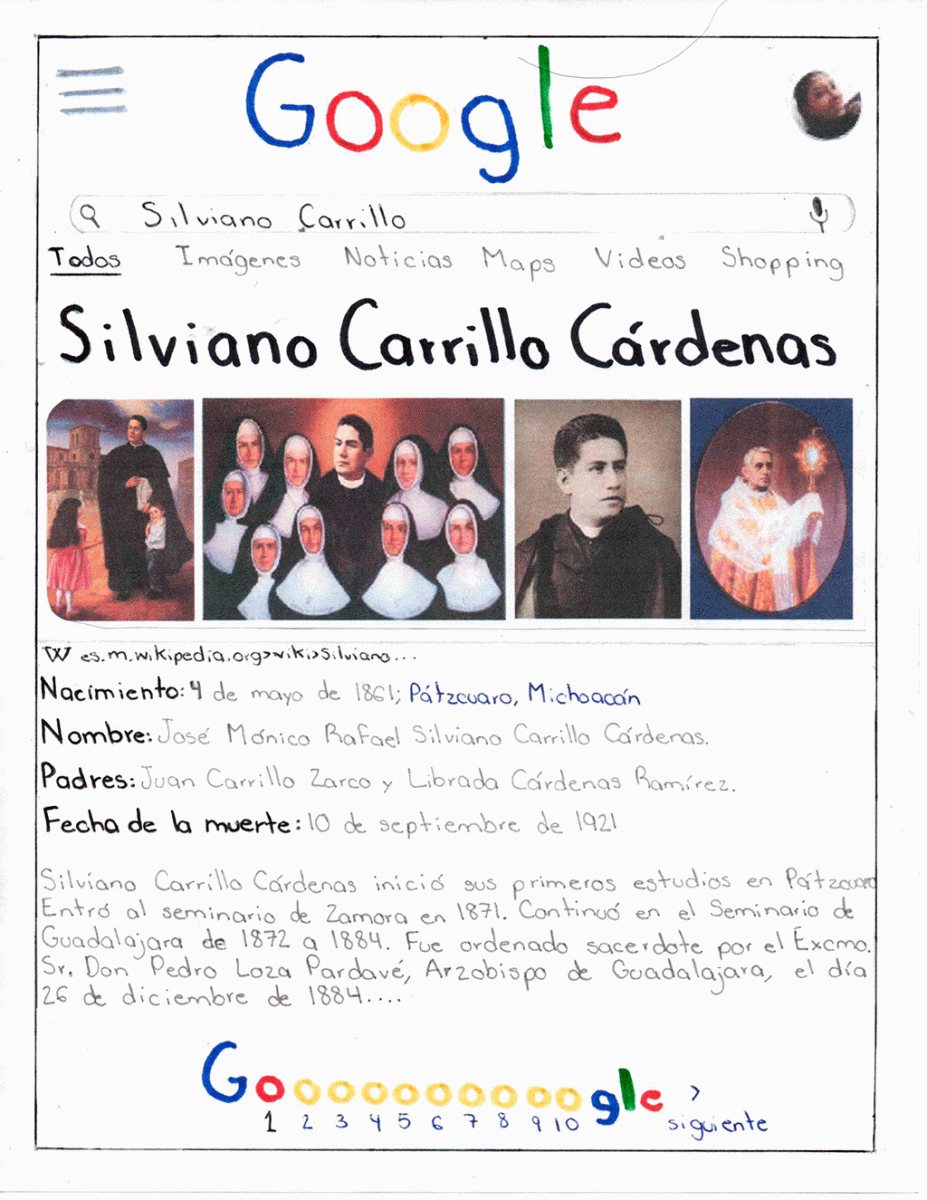 Google
Silviano Carrillo
Todos Imágenes Noticias Maps Videos Shopping
Silviano Carrillo Cárdenas
W es.m.wikipedia.org>wiki>Silviano...
Nacimiento: 4 de mayo de 1861; Pátzcuaro, Michoacán
Nombre: José Mónico Rafael Silviano Carrillo Cárdenas.
Padres: Juan Carrillo Zarco y Librada Cárdenas Ramírez.
Fecha de la muerte: 10 de septiembre de 1921
Silviano Carrillo Cárdenas inició sus primeros estudios en Pátzcuaro
Entró al seminario de Zamora en 1871. Continuó en el Seminario de
Guadalajara de 1872 a 1884. Fue ordenado sacerdote por el Excmo.
Sr. Don Pedro Loza Pardavé, Arzobispo de Guadalajara, el día
26 de diciembre de 1884....
Goooooooooogle >
1 2 3 4 5 6 7 8 9 10 siguiente